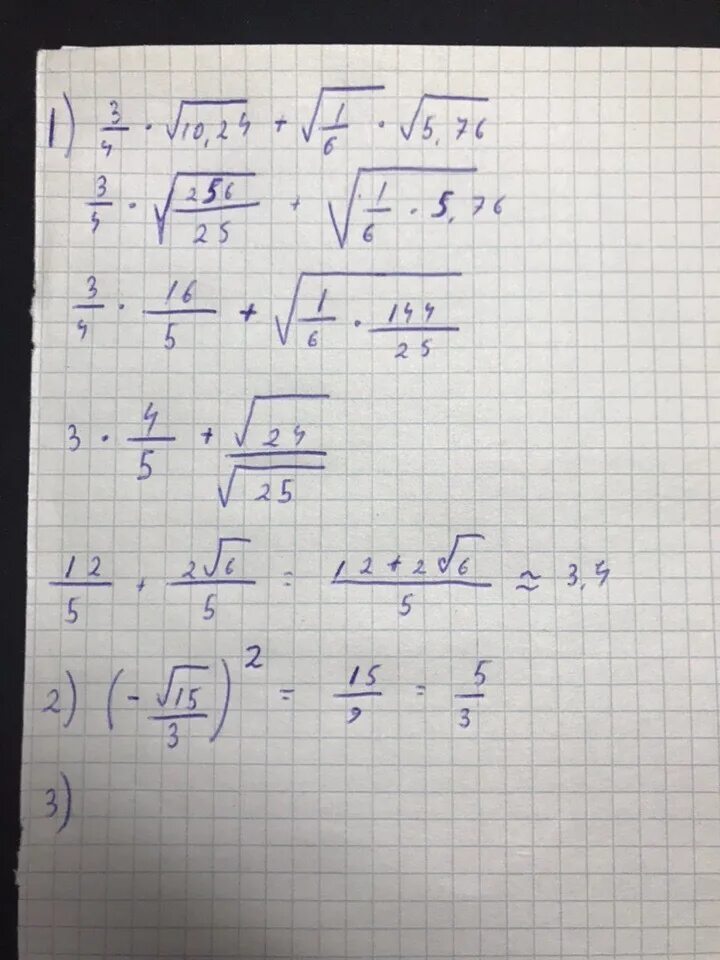 1) 3/4 · √10,24 + √1/6 · √5,76
3/4 · √256/25 + √1/6 · 5,76
3/4 · 16/5 + √1/6 · 144/25
3 · 4/5 + √24/√25
12/5 + 2√6/5 = 12+2√6/5 ≈ 3,4
2) (-√15/3)² = 15/9 = 5/3
3)